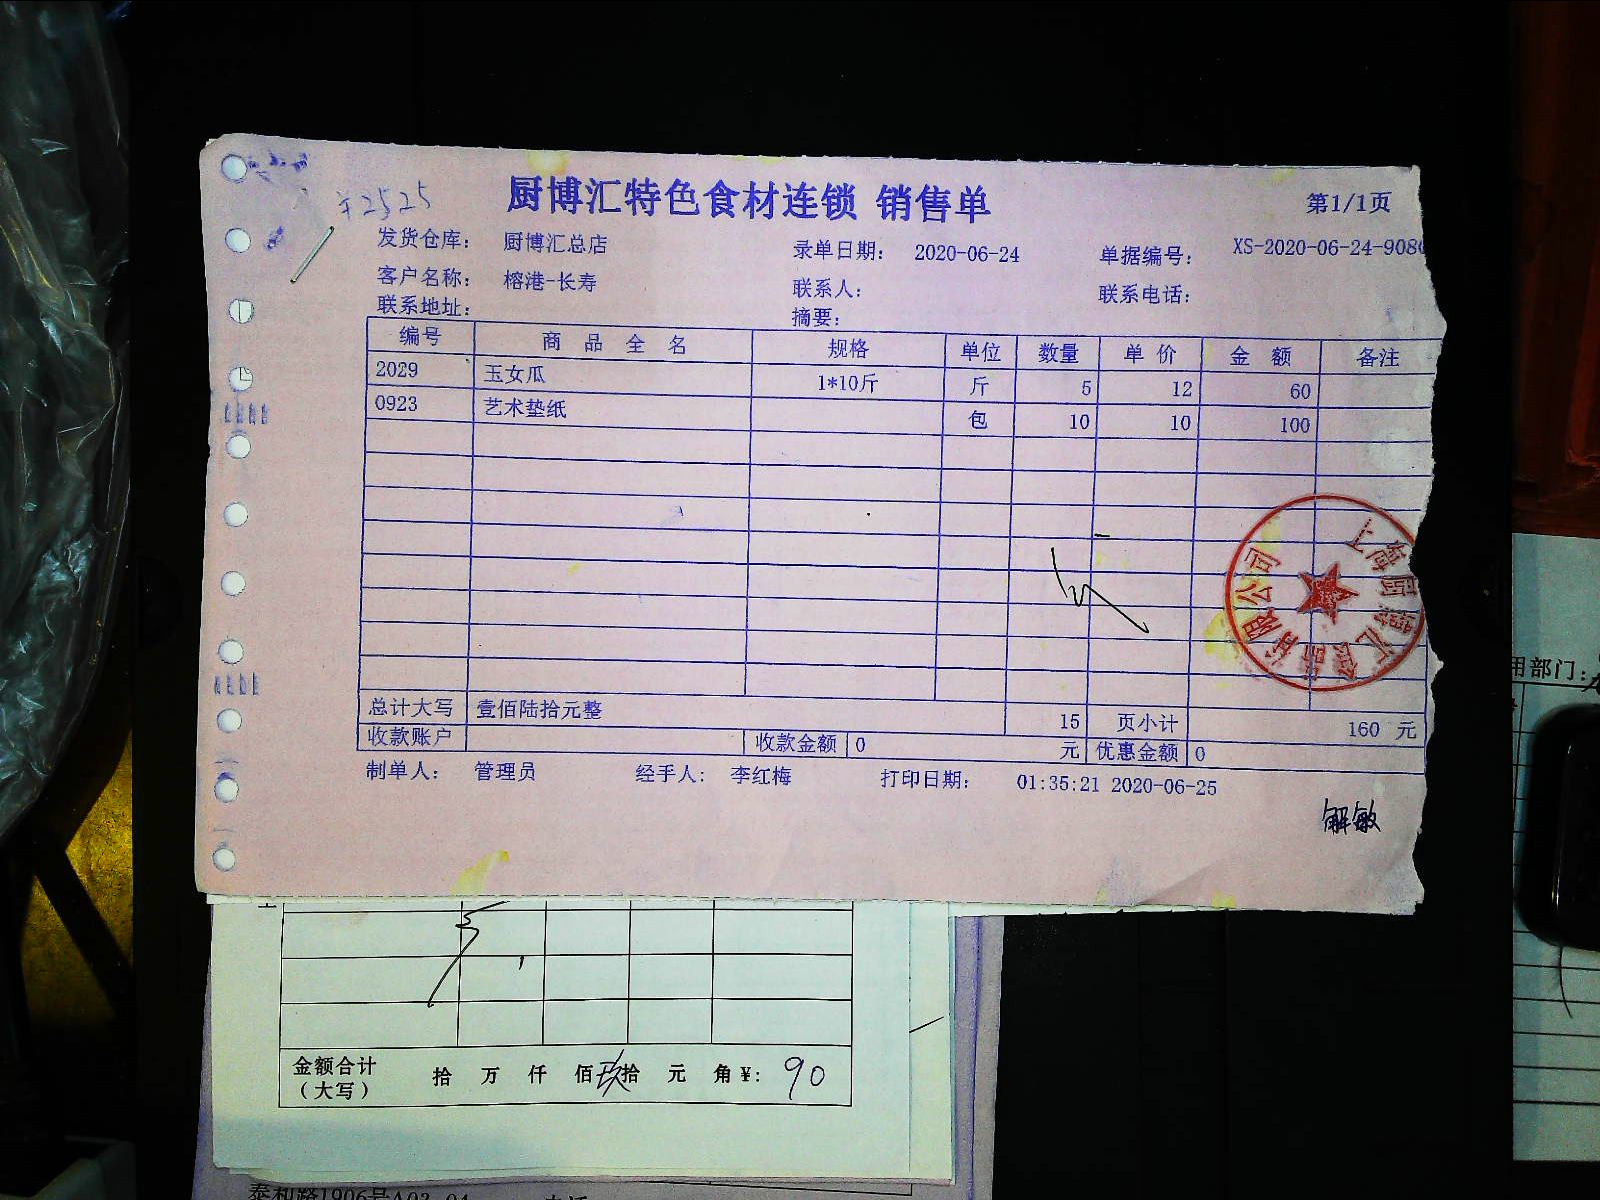 ¥2525
厨博汇特色食材连锁 销售单
第1/1页
发货仓库： 厨博汇总店 录单日期： 2020-06-24 单据编号： XS-2020-06-24-908
客户名称： 榕港-长寿 联系人： 联系电话：
联系地址： 摘要：
编号 商 品 全 名 规格 单位 数量 单 价 金 额 备注
2029 玉女瓜 1*10斤 斤 5 12 60
0923 艺术垫纸 包 10 10 100
总计大写 壹佰陆拾元整 15 页小计 160 元
收款账户 收款金额 0 元 优惠金额 0
制单人： 管理员 经手人： 李红梅 打印日期： 01:35:21 2020-06-25
解敏
用部门：
金额合计
（大写）
拾 万 仟 佰 玖拾 元 角 ¥: 90
泰和路1906号A03-04